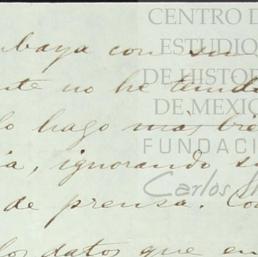 baya con su
te no he tenido
lo hago mas bie
ia, ignorando s
de prensa. Co
los datos que en
CENTRO D
ESTUDIO
DE HISTOR
DE MEXIC
FUNDACI
Carlos Sl